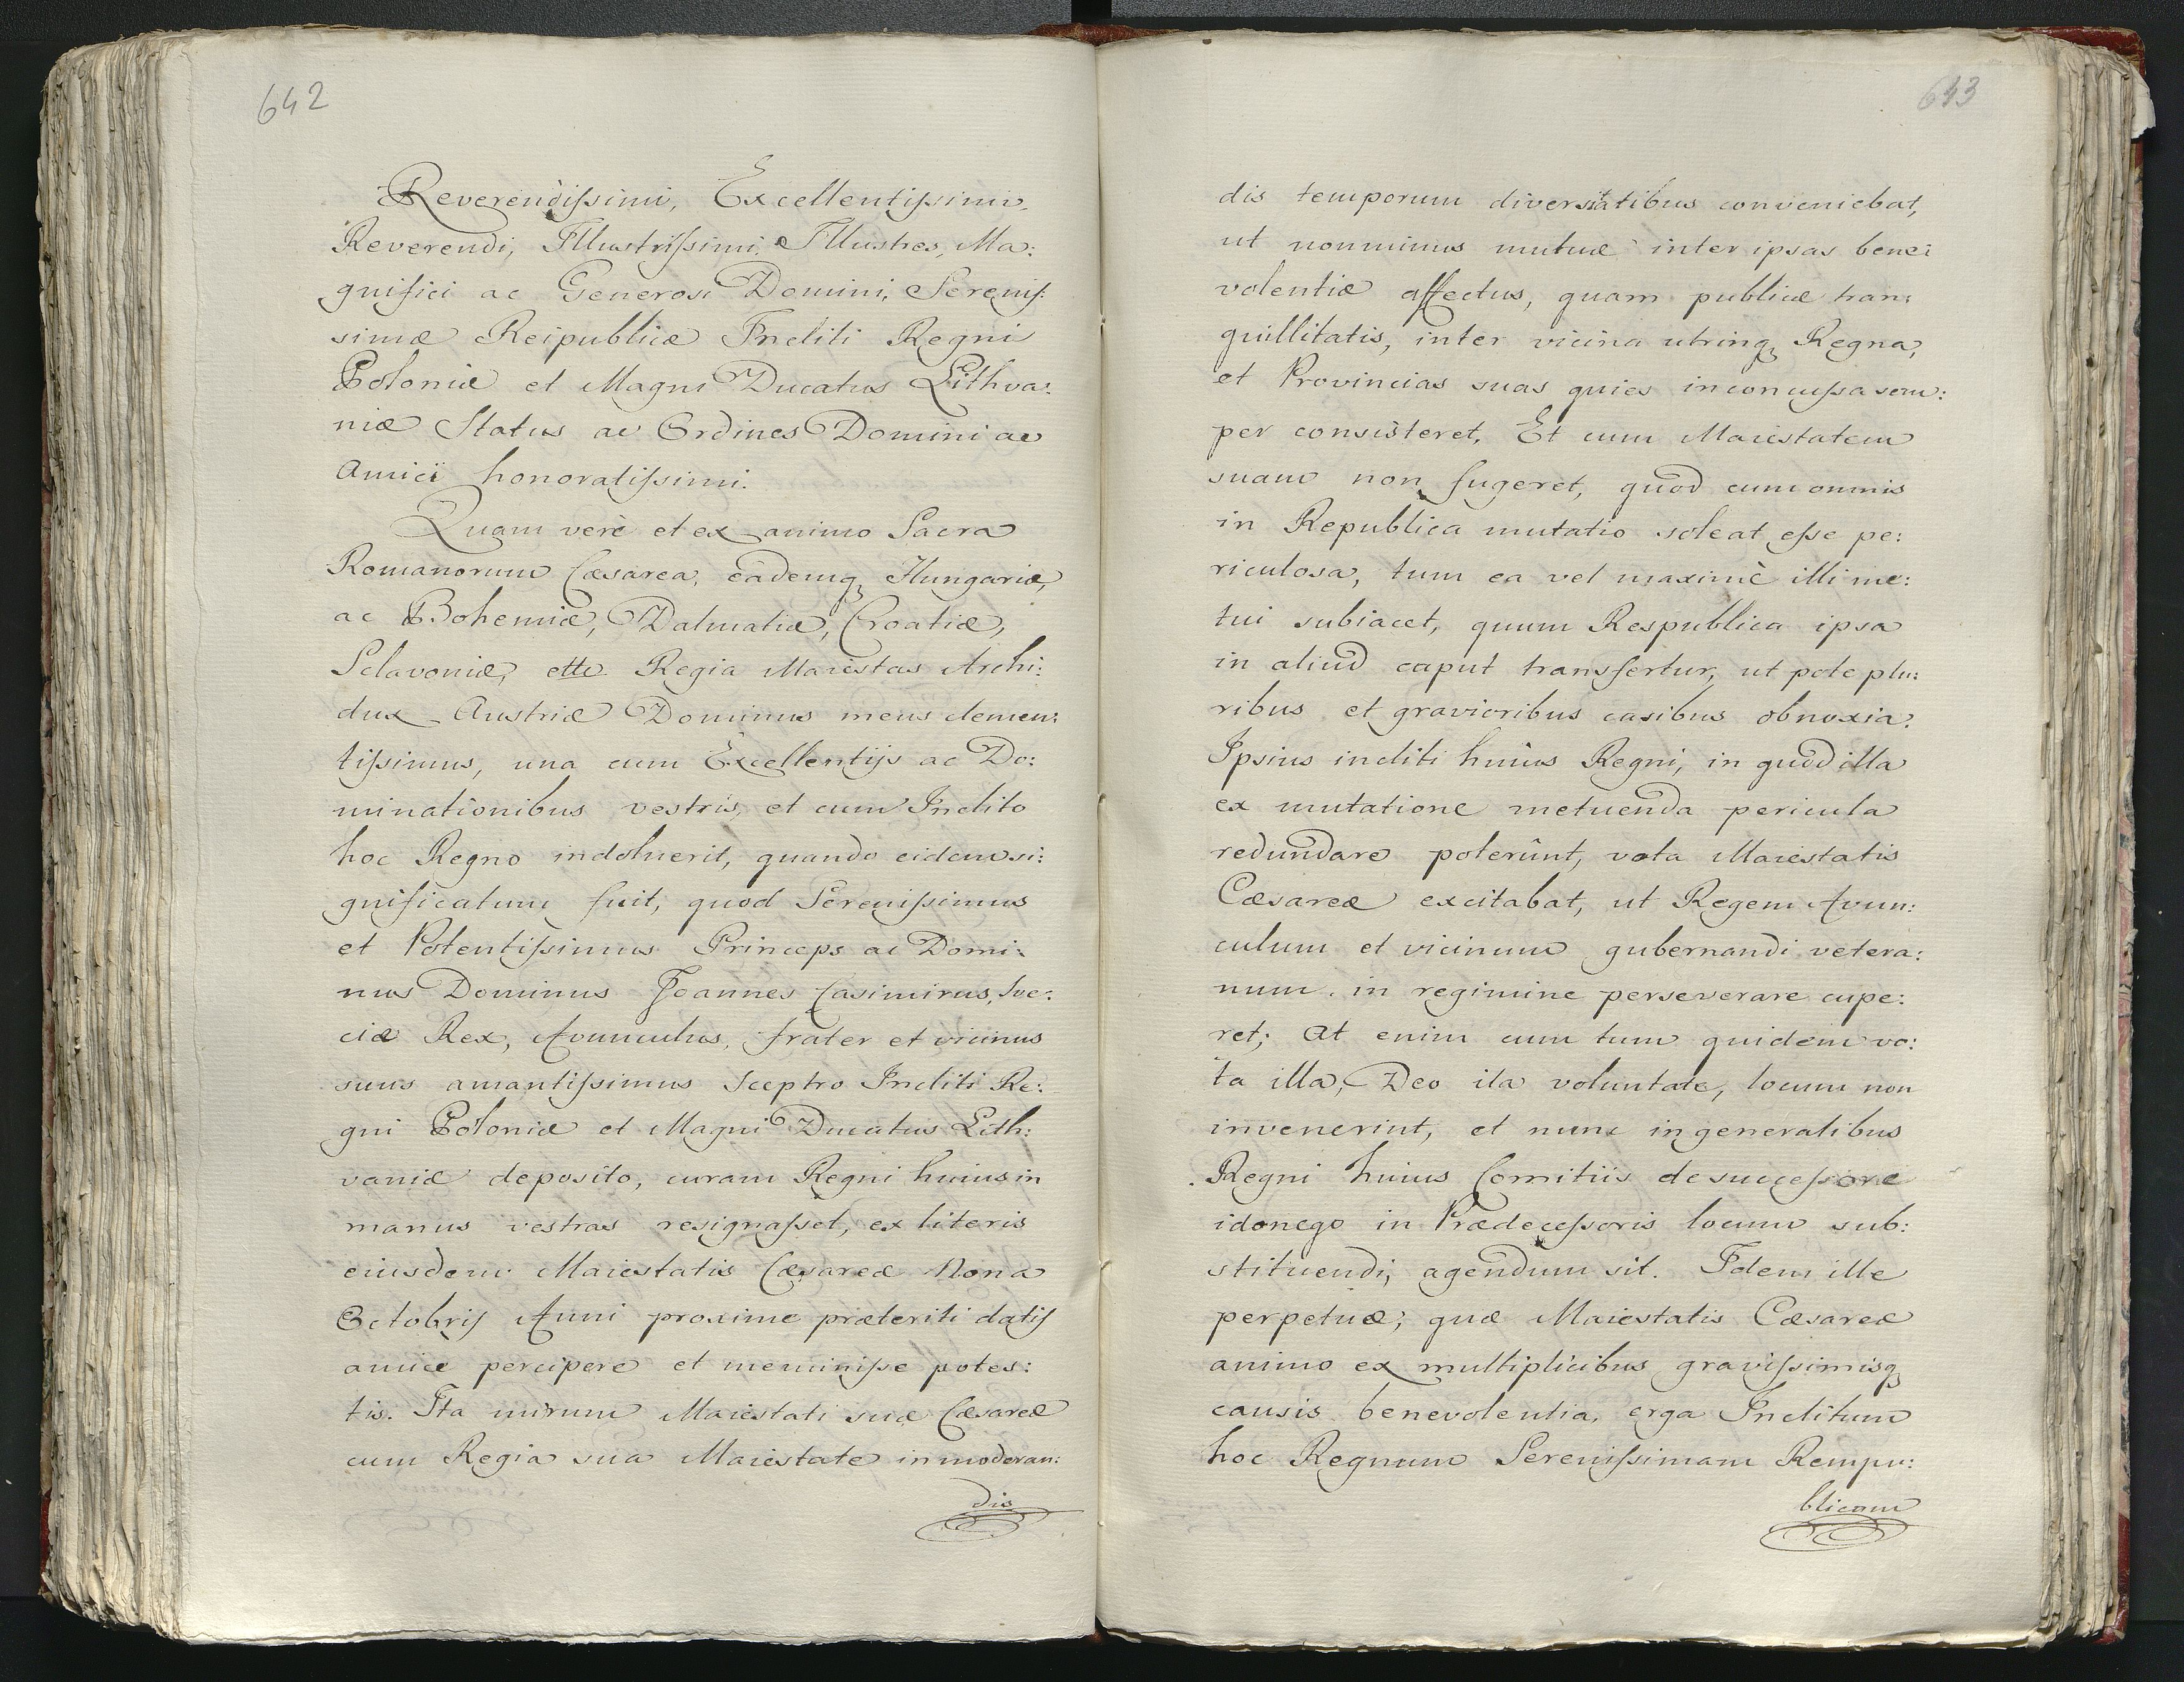 642
Reverendissimi, Excellentissimi,
Reverendi, Illustrissimi Illustres, Ma:
gnifici ac Generosi Domini, Serenis:
simæ Reipublicæ Incliti Regni
Poloniæ et Magni Ducatus Lithva:
niæ Status ac Ordines Domini ac
Amici honoratissimi.
Quam verè et ex animo Sacra
Romanorum Cæsarea, eademq Hungariæ,
ac Bohemiæ, Dalmatiæ, Croatiæ,
Sclavoniæ, ettc Regia Maiestas Archi:
dux Austriæ Dominus meus clemen:
tissimus, una cum Excellentijs ac Do:
minationibus vestris, et cum Inclito
hoc Regno indoluerit, quando eidem si:
gnificatum fuit, quod Serenissimus
et Potentissimus Princeps ac Domi:
nus Dominus Joannes Casimirus, Sve:
ciæ Rex, Avunculus, frater et vicinus
suus amantissimus Sceptro Incliti Re:
gni Poloniæ et Magni Ducatus Lith:
vaniæ deposito, curam Regni huius in
manus vestras resignasset, ex literis
eiusdem Maiestatis Cæsareæ Nona
Octobris Anni proxime præteriti datis
amice percipere et meminisse potes:
tis. Ita mirum Maiestati suæ Cæsareæ
cum Regia sua Maiestate in moderan:
dis
643
dis temporum diversitatibus conveniebat,
ut nonminus mutuæ inter ipsas bene:
volentiæ affectus, quam publicæ tran:
quillitatis, inter vicina utrinq Regna,
et Provincias suas quies inconcussa sem:
per consisteret. Et cum Maiestatem
suam non fugeret, quod cum omnis
in Republica mutatio soleat esse pe:
riculosa, tum ea vel maximè illi me:
tui subiacet, quum Respublica ipsa
in aliud caput transfertur, ut pote plu:
ribus et gravioribus casibus obnoxia.
Ipsius incliti huius Regni, in quod illa
ex mutatione metuenda pericula
redundare poterunt, vota Maiestatis
Cæsareæ excitabat, ut Regem Avun:
culum et vicinum gubernandi vetera:
num in regimine perseverare cupe:
ret; At enim cum tum quidem vo:
ta illa, Deo ita voluntate, locum non
invenerint, et nunc in generalibus
Regni huius Comitiis de successore
idonego in Prædecessoris locum sub:
stituendi, agendum sit. Idem ille
perpetuæ, quæ Maiestatis Cæsareæ
animo ex multiplicibus gravissimisq
causis benevolentia, erga Inclitum
hoc Regnum Serenissimam Rempu:
blicam